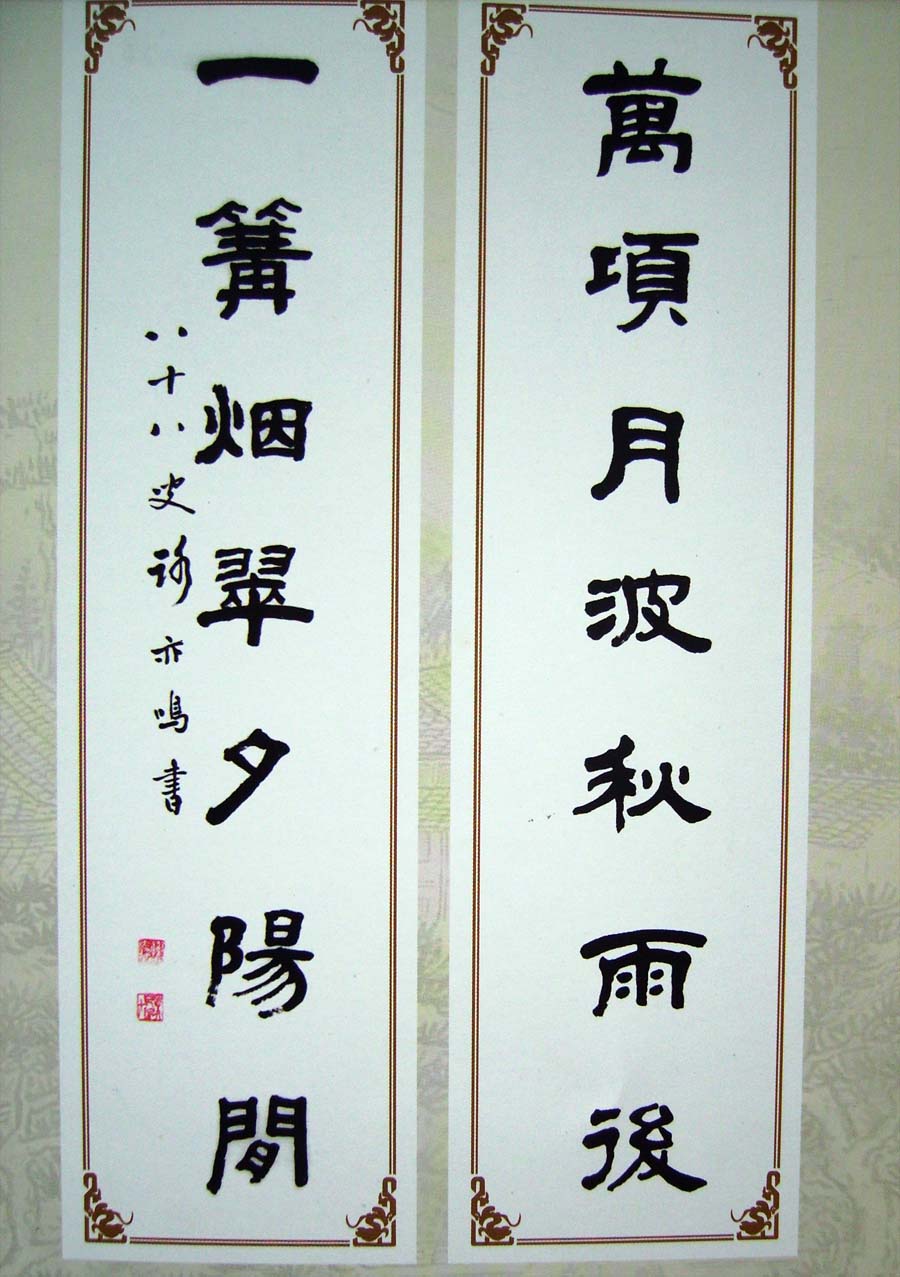 萬項月波秋雨後
一篝烟翠夕陽間
八十八叟 亦鳴書